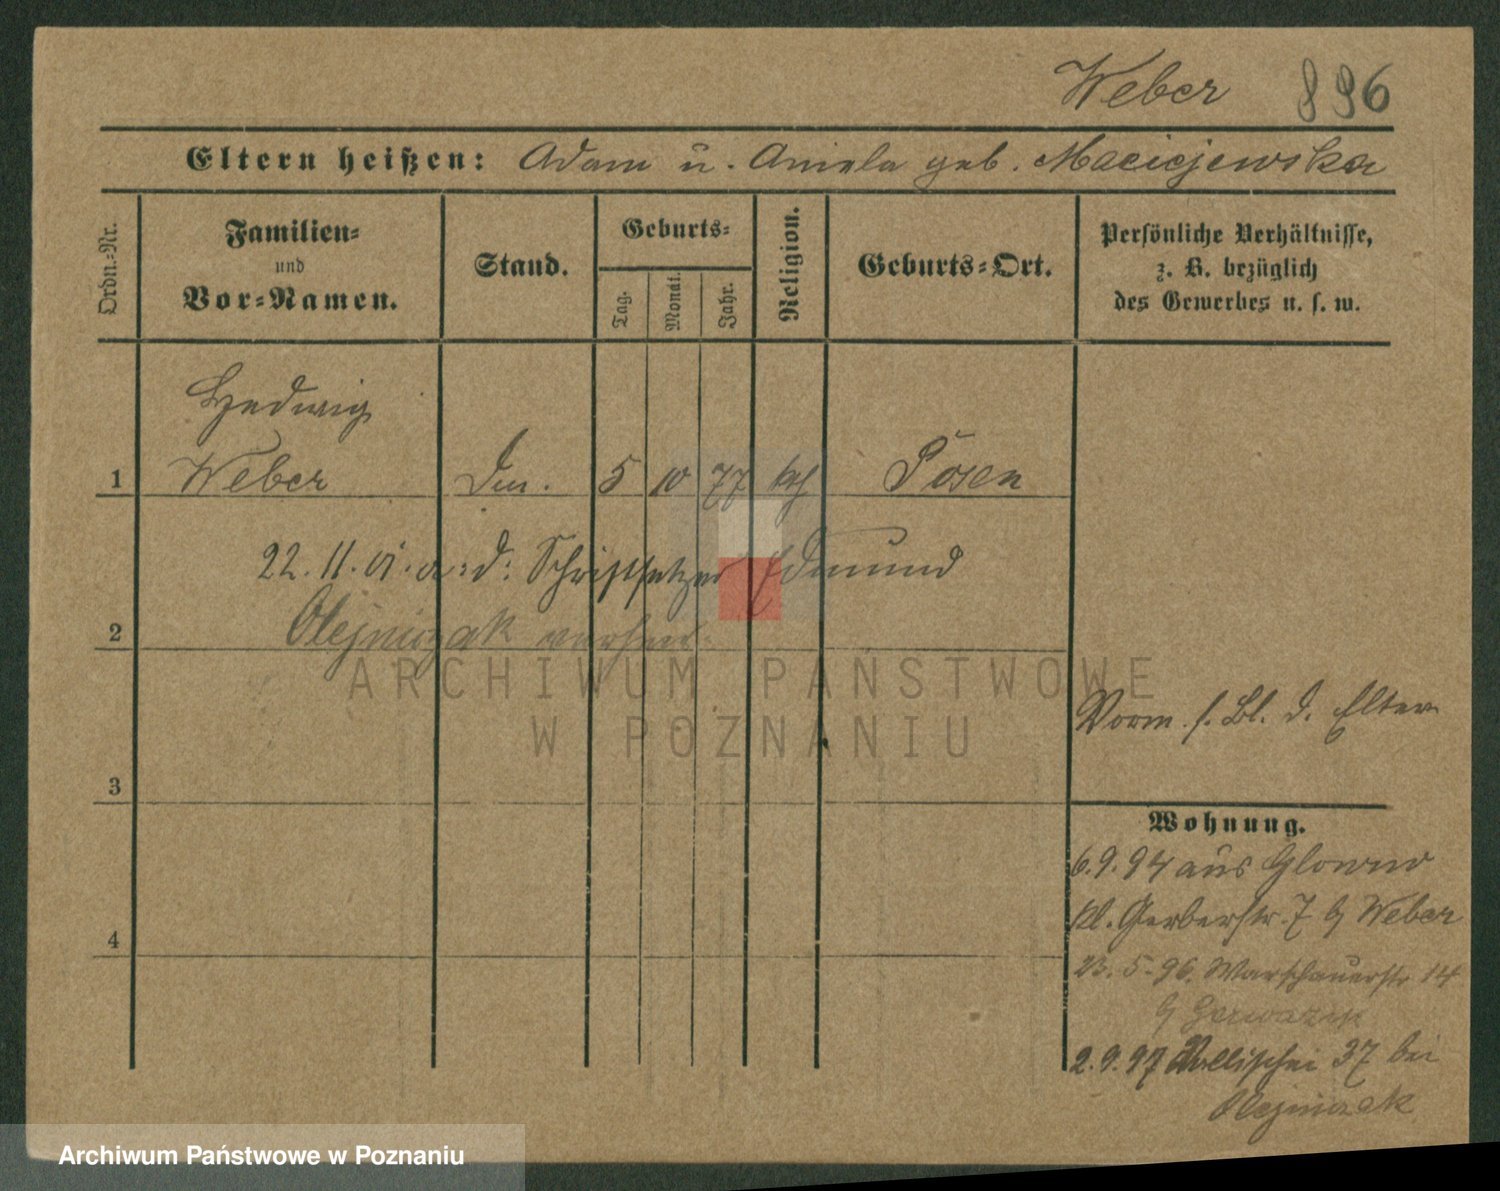 Weber 896
Eltern heißen: Adam u. Aniela geb. Maciejewska
Ordn.-Nr.
Familien-
und
Vor-Namen.
Stand.
Geburts-
Tag.
Monat.
Jahr.
Religion.
Geburts-Ort.
Persönliche Verhältnisse,
z. B. bezüglich
des Gewerbes u. s. w.
Hedwig
1 Weber 5 10 77 kth Posen
22. 11. a. d. Schriftsetzer Edmund
2 Olejniczak verheir.
ARCHIWUM PAŃSTWOWE
W POZNANIU
Vorm. s. Bl. d. Eltern
3
Wohnung.
6.9.94 aus Glowno
kl. Gerberstr. 7 b/ Weber
4
23. 5. 96. Warschauerstr 14
b/
2.9.97 Wallischei 37 bei
Olejniczak
Archiwum Państwowe w Poznaniu